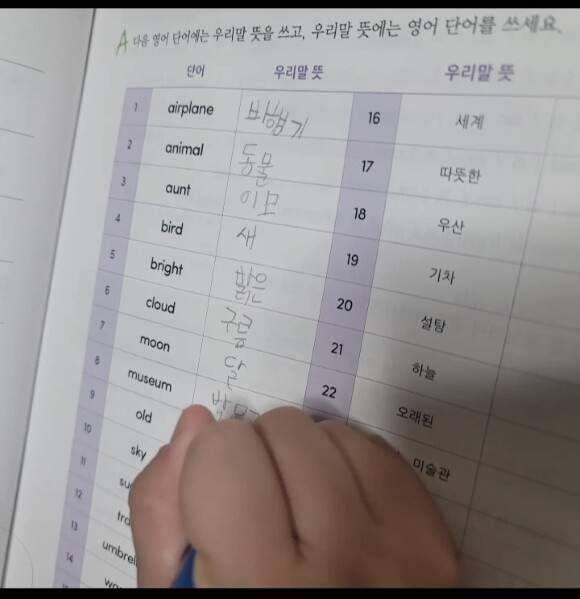 A 다음 영어 단어에는 우리말 뜻을 쓰고, 우리말 뜻에는 영어 단어를 쓰세요.
단어 우리말 뜻 우리말 뜻
1 airplane 비행기 16 세계
2 animal 동물 17 따뜻한
3 aunt 이모 18 우산
4 bird 새 19 기차
5 bright 밝은 20 설탕
6 cloud 구름 21 하늘
7 moon 달 22 오래된
8 museum 박물 미술관
9 old
10 sky
11
12
13
14